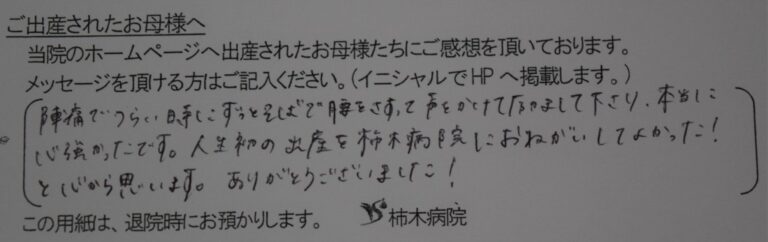 ご出産されたお母様へ
当院のホームページへ出産されたお母様たちにご感想を頂いております。
メッセージを頂ける方はご記入ください。(イニシャルでHPへ掲載します。)
陣痛でつらい時にずっとそばで腰をさすって声をかけて励まして下さり、本当に
心強かったです。人生初の出産を柿木病院におねがいしてよかった!
と心から思います。ありがとうございました!
この用紙は、退院時にお預かりします。 柿木病院